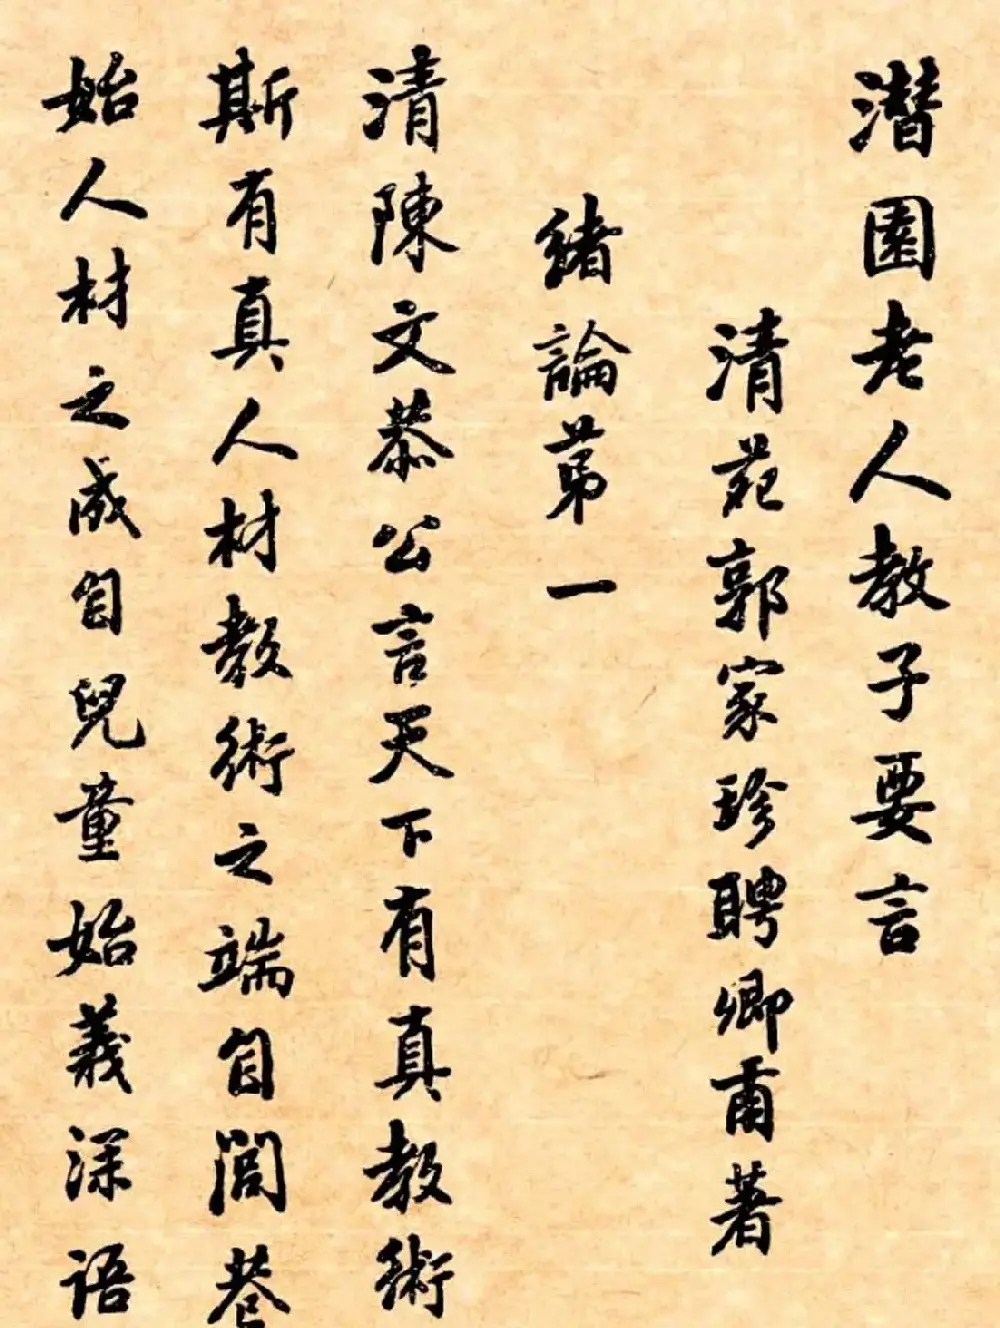 潛園老人教子要言
清苑郭家珍聘卿甫著
緒論第一
清陳文恭公言天下有真教術
斯有真人材教術之端自閭巷
始人材之成自兒童始義深語